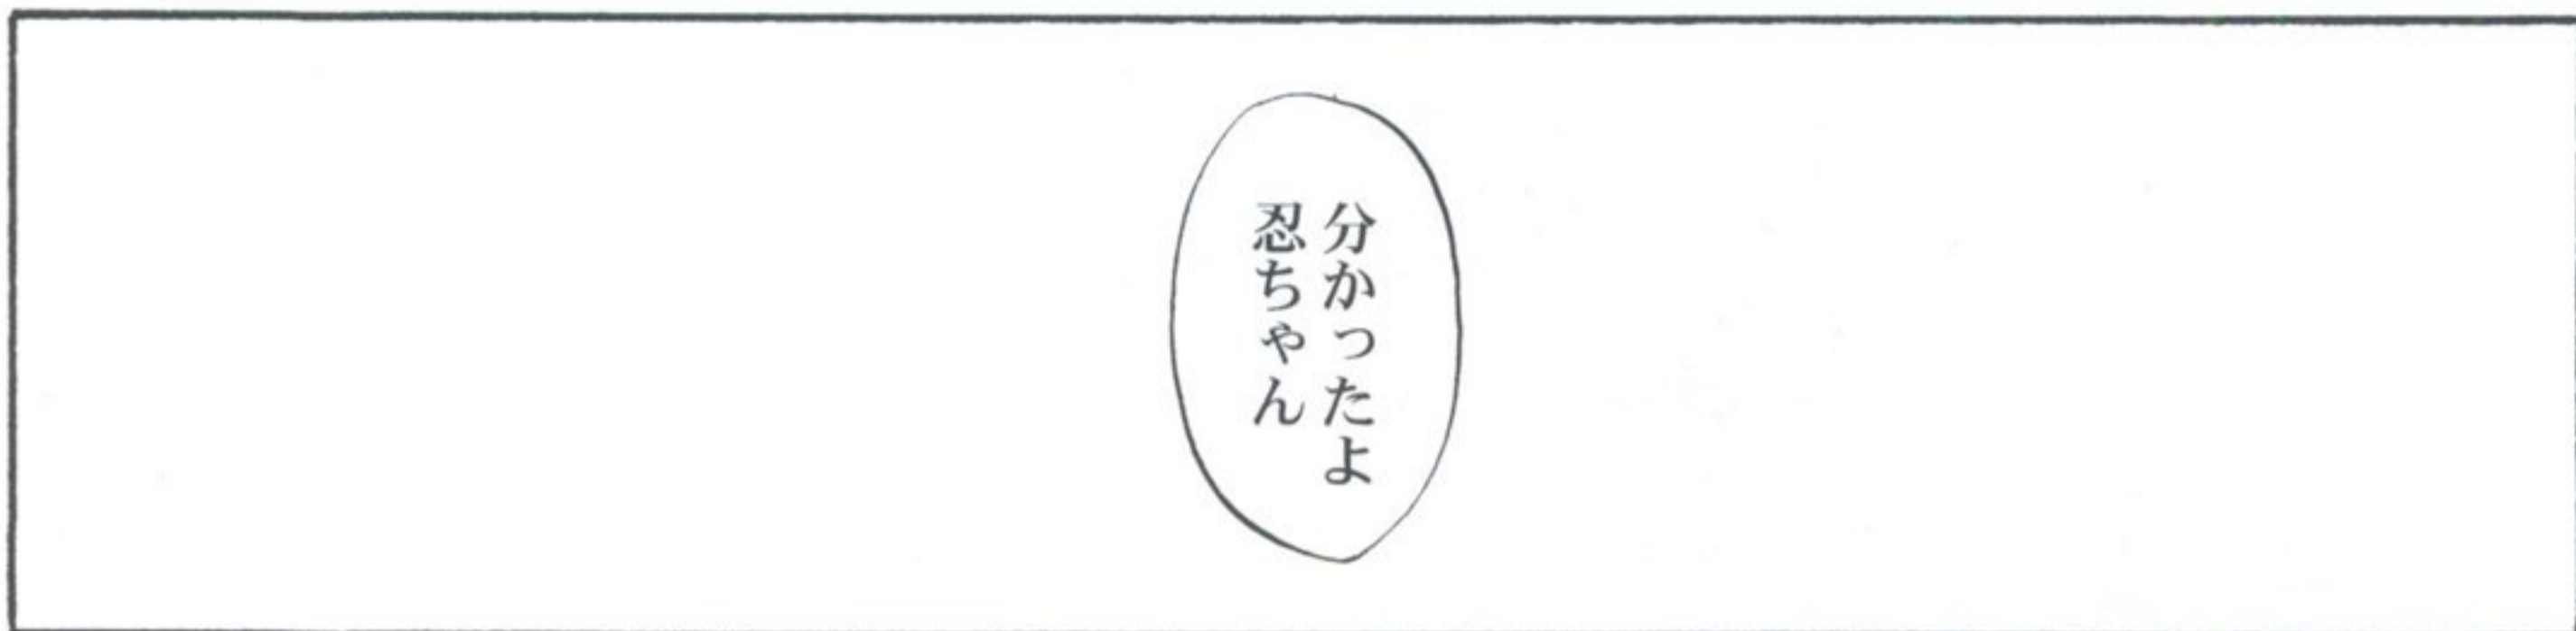 分かったよ
忍ちゃん